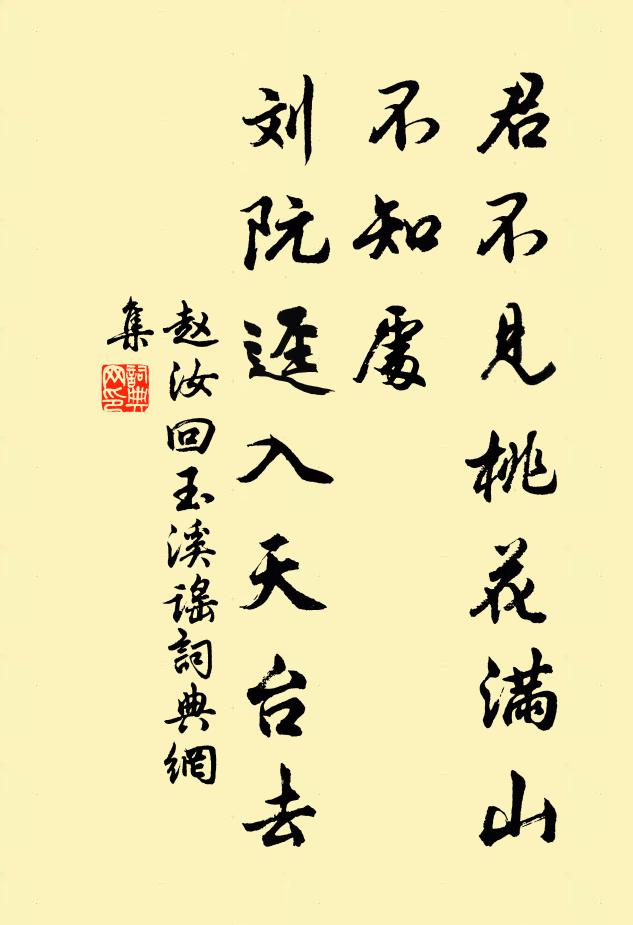 君不見桃花滿山
不知處
刘阮逕入天台去
赵汝回玉溪謡詞典網
集
詞典网印